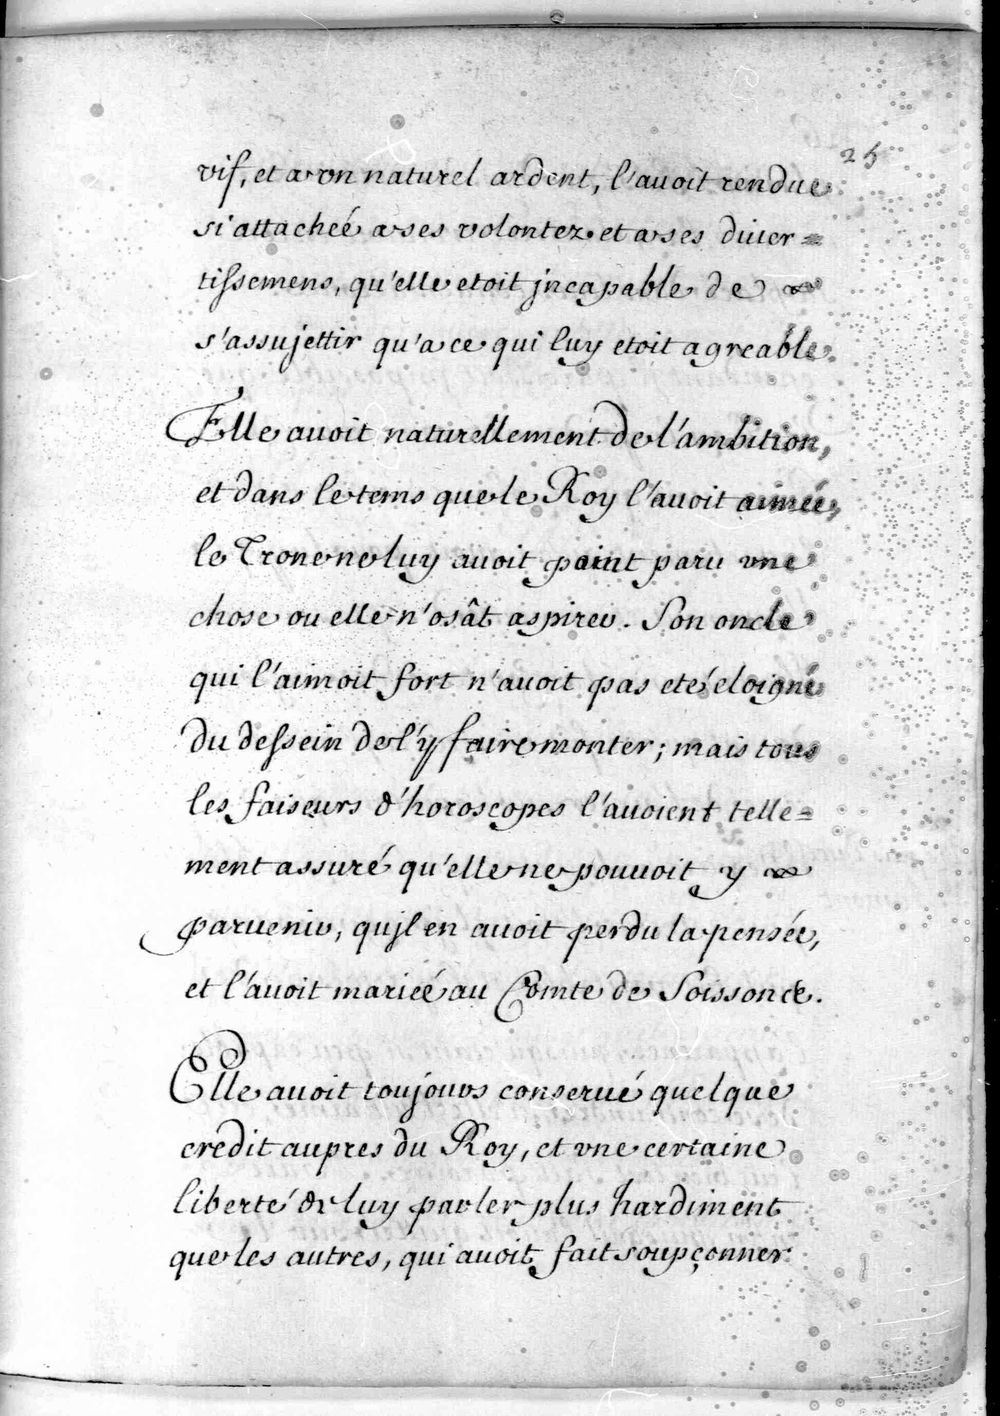 25
vif, et a vn naturel ardent, l'auoit rendue
si attacheé a ses volontez et a ses diuer=
tissemens, qu'elle etoit jncapable de
s'assujettir qu'a ce qui luy etoit agreable.
Elle auoit naturellement de l'ambition,
et dans le tems que le Roy l'auoit aimeé,
le Trone ne luy auoit point paru vne
chose ou elle n'osât aspirer. Son oncle
qui l'aimoit fort n'auoit pas eté eloigné
du dessein de l'y faire monter; mais tous
les faiseurs d'horoscopes l'auoient telle=
ment assuré qu'elle ne pouuoit y
paruenir, qujl en auoit perdu la pensée,
et l'auoit marieé au Comte de Soissons.
Elle auoit toujours conserué quelque
credit aupres du Roy, et vne certaine
liberté de luy parler plus hardiment
que les autres, qui auoit fait soupçonner